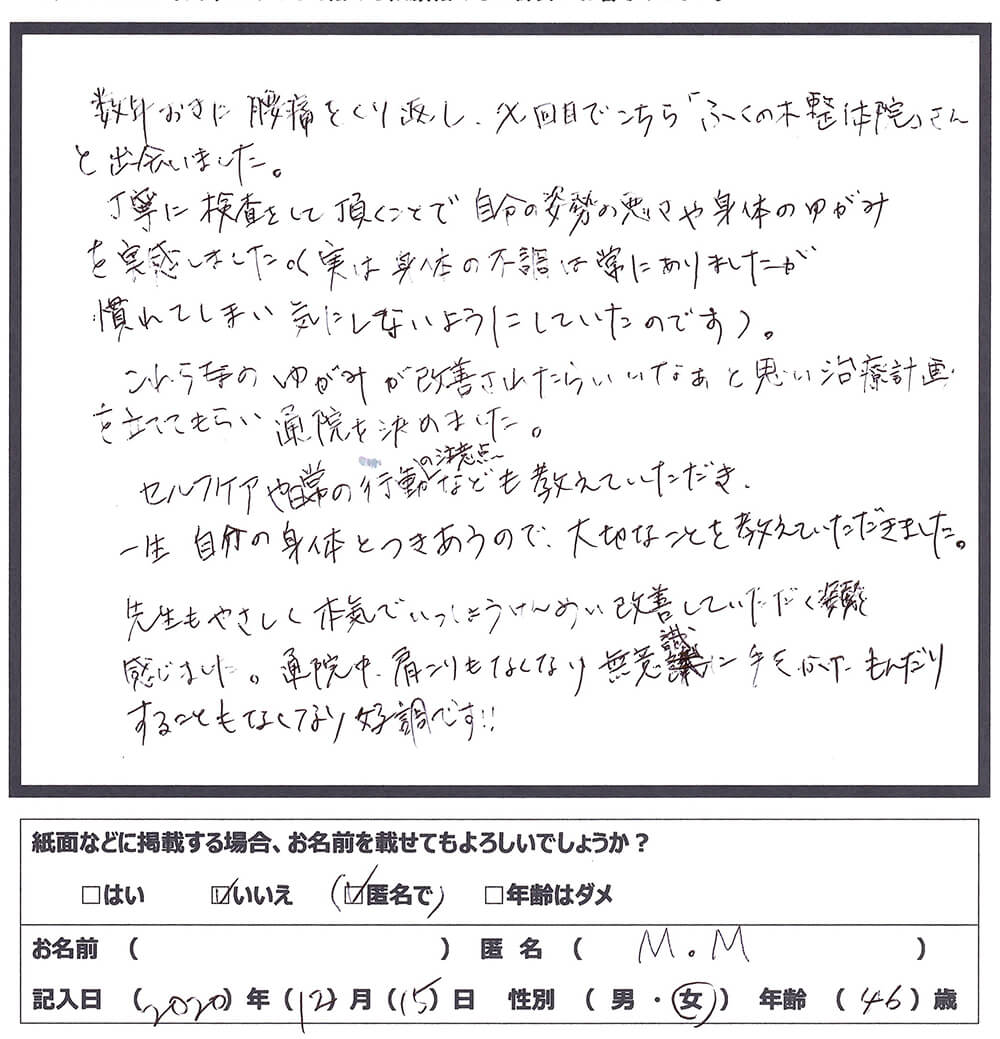 数年おきに腰痛をくり返し、 回目でこちら「ふくの木整体院」さん
と出会いました。
丁寧に検査をして頂くことで自分の姿勢の悪さや身体のゆがみ
を実感しました。(実は身体の不調は常にありましたが
慣れてしまい気にしないようにしていたのです)。
これら等のゆがみが改善されたらいいなぁと思い治療計画
を立ててもらい通院を決めました。
セルフケアや日常の行動の注意点なども教えていただき、
一生自分の身体とつきあうので、大切なことを教えていただきました。
先生もやさしく本気でいっしょうけんめい改善していただく姿勢
感じました。通院中、肩こりもなくなり無意識に手をかけたもんだり
することもなくなり好調です!!
紙面などに掲載する場合、お名前を載せてもよろしいでしょうか?
□はい ☑いいえ (☑匿名で) □年齢はダメ
お名前 ( ) 匿名 ( M.M )
記入日 (2020)年(12)月(15)日 性別 (男・女) 年齢 (46)歳